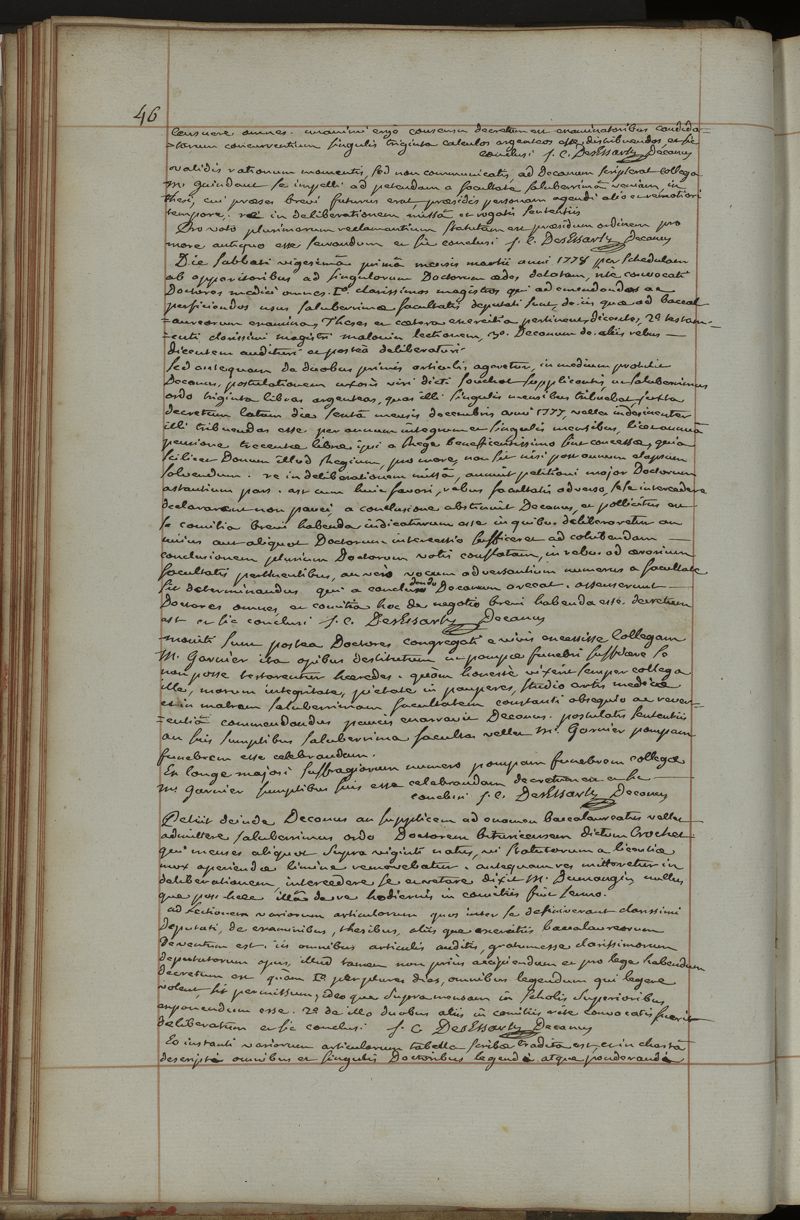 46
Censuere omnes. unanimi ergo consensu decretum est examinatoribus candida=
=torum concurrentium singulis triginta calculos argenteos esse distribuendos, et sic
conclusi J. C. DesEssartz Decanus
validis rationum momentis, sed non communicatis, ad Decanum scripserat collega
M. Guindant se impelli ad petendam a facultate saluberrimâ veniam, in
thesi, cui praeses brevi futurus erat, praesidis personam agendi alio et remotiori
tempore. re in deliberationem missâ et rogatis sententiis
Pro voto plurimorum reclamantium statutum est praesidum ordinem pro
more antiquo esse servandum et sic conclusi J. C. DesEssartz Decanus
Die sabbati vigesimâ primâ mensis martii anni 1778 per schedulam
ab apparitoribus ad singulorum Doctorum aedes delatam, rite convocati
Doctores medici omnes. 1o. clarissimos magistros qui ad emendandos ac
perficiendos usus saluberrimae facultatis deputati sunt, de iis quae ad baccal
=aureorum examina, Theses et caetera exercitia pertinent, dicentes, 2o. testam=
=enti clarissimi magistri malouin lectionem, 3o. Decanum de aliis rebus
dicentem audituri et posteà deliberaturi.
Sed antequam de duobus primis articulis ageretur, in medium protulit
Decanus, postulationem uxoris viri dicti Souchet supplicantis, ut saluberrimus
ordo triginta libras argenteas, quas illi singulis mensibus tribuebat, juxta
decretum latum die sextâ mensis decembris anni 1777, vellet indesinenter
illi tribuendas esse per annum integrum et singulis mensibus, licet annuâ
pensione trecentae librae ipsi a Rege beneficentissimo sint concessae, quia
scilicet Donum illud Regium, pro more, non sit nisi post annum elapsum
solvendum. re in deliberationem missâ, annuit petitioni major Doctorum
astantium pars. ast cum huic favori, rebus facultatis adverso, sese intercedere
declararent non pauci, a conclusione abstinuit Decanus, et pollicitus est
se comitia brevi habenda indicaturum esse in quibus deliberaretur an
unius aut aliquot Doctorum intercessio sufficeret ad cohibendam
conclusionem plurium Doctorum votis conflatam, in rebus ad aerarium
facultatis pertinentibus, an vero vocum adversantium numerus a facultate
sit determinandus qui a concludendo Decanum arceat. assenserunt
Doctores omnes, et comitia hoc de negotio brevi habenda esse decretum
est et sic conclusi J. C. DesEssartz Decanus
moniti sunt postea Doctores congregati e vivis excessisse Collegam
M. Garnier ita opibus destitutum ut pompae funebri sufficere se
non posse testarentur haeredes. quam honestè vixerit semper collega
ille, morum integritate, pietate in pauperes, studio artis medicae
et in matrem saluberrimam facultatem constanti obsequio ac rever=
=entiâ commendandus paucis enarravit Decanus. postulatis sententiis
an suis sumptibus saluberrima facultas vellet Mi. Garnier pompam
funebrem esse celebrandam.
Ex longe majori suffragiorum numero pompam funebrem collegae
Mi. Garnier sumptibus suis esse celebrandam decretum est et sic
conclusi J. C. DesEssartz Decanus
Petiit deinde Decanus an supplicem ad examen baccalaureatus vellet
admittere saluberrimus ordo Doctorem bituricensem dictum Crochet
qui menses aliquot supra viginti natus, ni statutorum a licentia
mox aperienda limine removebatur. antequam res mitteretur in
deliberationem, intercedere se et vetare dixit M. Dumangin nullus
que post hac illâ de re hodiernis in comitiis fuit sermo.
ad lectionem variorum articulorum quos inter se definiverant clarissimi
deputati, de examinibus, thesibus, aliis que exercitiis baccalaureorum
deventum est. iis omnibus articulis auditis, gratum esse clarissimorum
deputatorum opus, illud tamen non prius accipiendum et pro lege habendum
decretum est quàm 1o. per plures dies, omnibus legendum qui legere
volent, sit permissum, ideo que supra mensam in scholis superioribus
exponendum esse. 2o. de illo duobus aliis in comitiis rite convocatis fuerit
deliberatum et sic conclusi. J. C DesEssartz Decanus
Ex instanti variorum articulorum tabella scribae tradita est, et in chartâ
descripti omnibus et singulis Doctoribus legendi atque ponderandi